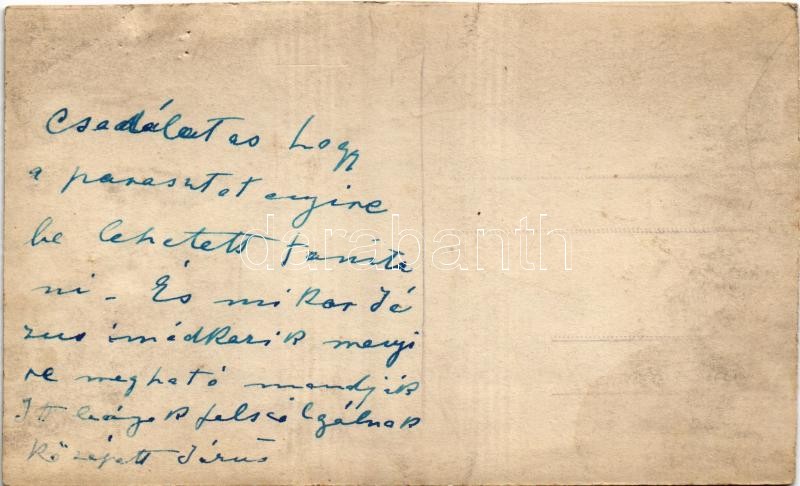 Csodálatos hogy
a parasztot enyire
be lehetett tanita
ni – És mikor Jé
zus imádkozik menyi
re megható mondják
Itt
középett Jézus
darabanth